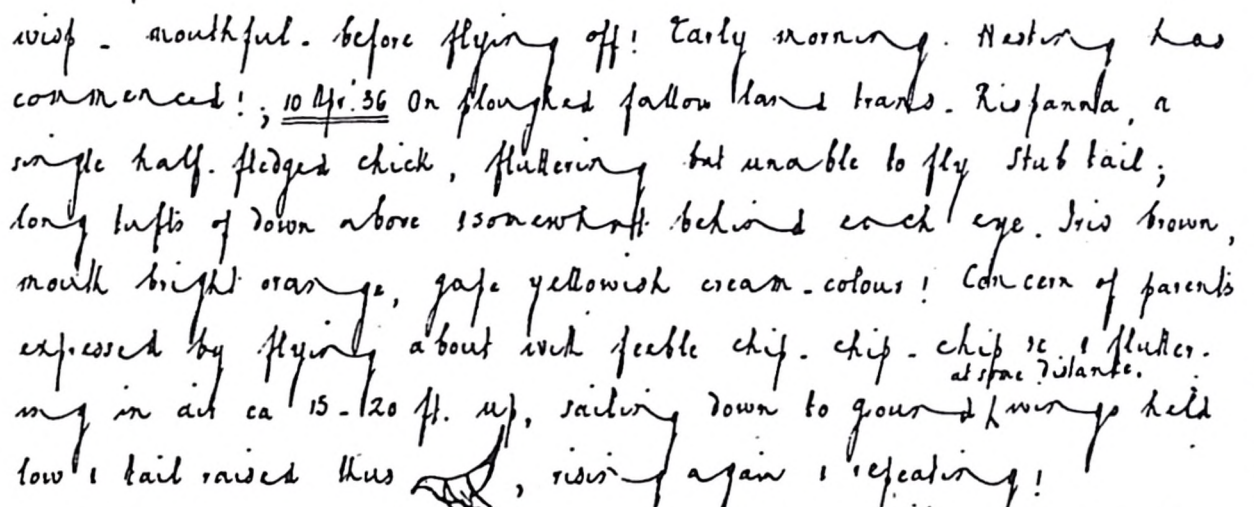 wisp - mouthful - before flying off! Early morning. Nesting has
commenced!; 10 Apr. '36 On ploughed fallow land trans- Rispanna, a
single half-fledged chick, fluttering but unable to fly Stub tail;
long tufts of down above & somewhat behind each eye. Iris brown,
mouth bright orange, gape yellowish cream-colour! Concern of parents
expressed by flying about with feeble chip-chip-chip &c & flutter-
at some distance.
ing in air ca 15-20 ft. up, sailing down to gound wings held
low & tail raised thus , rising again & repeating!